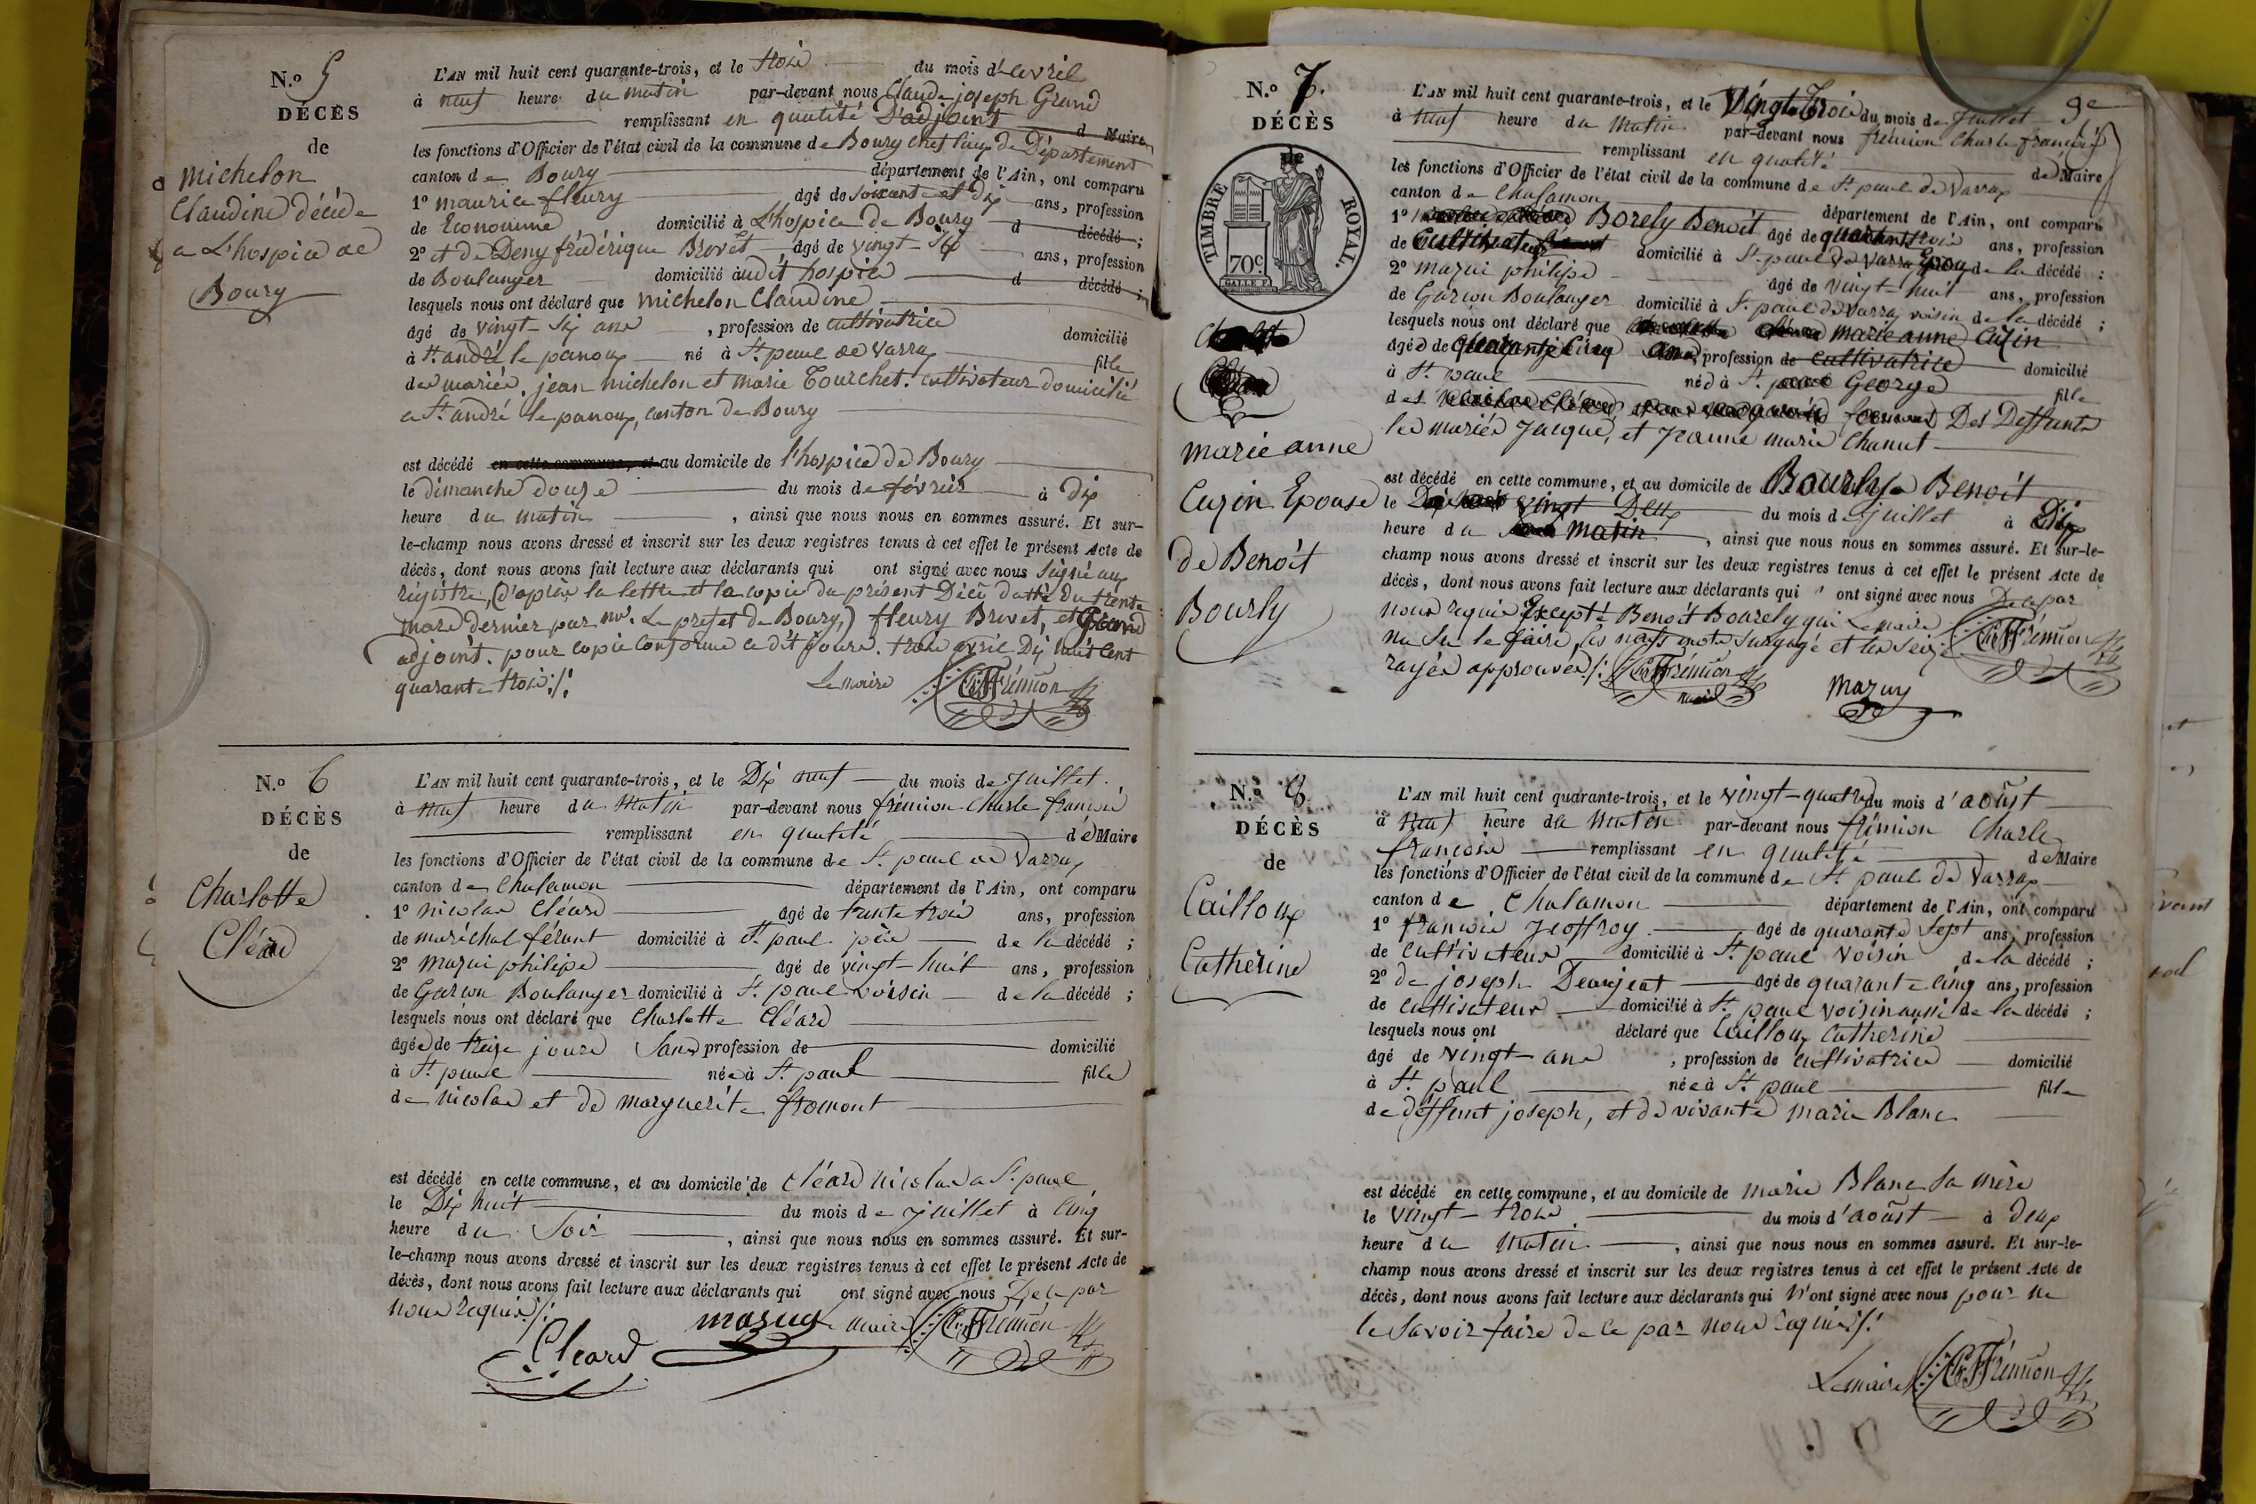 N.º 5
DÉCÈS
de
Michelon
Claudine décédé
a L'hospice de
Bourg
L'AN mil huit cent quarante-trois, et le trois du mois d'avril
à neuf heure du matin par-devant nous Claude joseph Grand
remplissant en qualité D'adjoint d Maire
les fonctions d'Officier de l'état civil de la commune de Bourg chef lieu de Département
canton de Bourg département de l'Ain, ont comparu
1º maurice fleury agé de soixante et dix ans, profession
de Econome domicilié à L'hospice de Bourg d décédé ;
2º et de Deny frédérique Brevet agé de vingt-six ans, profession
de Boulanger domicilié audit hospice d décédé ;
lesquels nous ont déclaré que Michelon Claudine
agé de vingt-six ans, profession de cultivatrice domicilié
à St. andré le panoux né à St. paul de Varax fille
des mariés jean michelon et marie Tourchet. cultivateur domicilié
a St. andré le panoux, canton de Bourg
est décédé en cette commune, et au domicile de l'hospice de Bourg
le dimanche douze du mois de février à dix
heure du matin, ainsi que nous nous en sommes assuré. Et sur-
le-champ nous avons dressé et inscrit sur les deux registres tenus à cet effet le présent Acte de
décès, dont nous avons fait lecture aux déclarants qui ont signé avec nous signé au
régistre, (d'après la lettre et la copie du présent Décè datté du trente
mars dernier par mr. Le prefet de Bourg,) fleury Brevet, et Grand
adjoint. pour copie conforme ce dit jours. trois avril Dix huit cent
quarante trois ./.
Le maire Ch Fr Frémion
N.º 6
DÉCÈS
de
Charlotte
Cléard
L'AN mil huit cent quarante-trois, et le Dix neuf du mois de juillet.
à neuf heure du matin par-devant nous frémion Charle francois
remplissant en qualité de Maire
les fonctions d'Officier de l'état civil de la commune de St. paul de Varax
canton de Chalamon département de l'Ain, ont comparu
1º nicolas Cléard agé de trente trois ans, profession
de maréchal férant domicilié à St. paul père de la décédé ;
2º mazui philipe agé de vingt-huit ans, profession
de Garson Boulanger domicilié à St. paul voisin de la décédé ;
lesquels nous ont déclaré que Charlotte Cléard
agée de treize jours Sans profession de domicilié
à St. paul née à St. paul fille
de nicolas et de marguerite fromont
est décédé en cette commune, et au domicile de Cléard nicolas a St. paul
le Dix huit du mois de juillet à cinq
heure du Soir, ainsi que nous nous en sommes assuré. Et sur-
le-champ nous avons dressé et inscrit sur les deux registres tenus à cet effet le présent Acte de
décès, dont nous avons fait lecture aux déclarants qui ont signé avec nous De ce par
nous requis ./.
Cleard mazuy maire Ch Fr Frémion
N.º 7.
DÉCÈS
de
TIMBRE ROYAL.
70c
GALLE F.
marie anne
Cuzin Epouse
de Benoit
Bourly
L'AN mil huit cent quarante-trois, et le Vingt Trois du mois de juillet 9e
à neuf heure du matin par-devant nous frémion Charle francois
remplissant en qualité de Maire
les fonctions d'Officier de l'état civil de la commune de St. paul de Varax
canton de Chalamon département de l'Ain, ont comparu
1º Borely Benoit agé de quarante trois ans, profession
de Cultivateur domicilié à St. paul de Varax Epoux de la décédé ;
2º mazui philipe agé de vingt-huit ans, profession
de Garson Boulanger domicilié à St. paul de Varax voisin de la décédé ;
lesquels nous ont déclaré que marie anne Cuzin
agée de quarante Cinq ans, profession de cultivatrice domicilié
à St. paul née à St. George fille
des Des Deffunts
les mariés jacque, et jeanne marie Chanut
est décédé en cette commune, et au domicile de Bourly Benoit
le vingt Deux du mois de juillet à Dix
heure du matin, ainsi que nous nous en sommes assuré. Et sur-le-
champ nous avons dressé et inscrit sur les deux registres tenus à cet effet le présent Acte de
décès, dont nous avons fait lecture aux déclarants qui ont signé avec nous De ce par
nous requis Excepté Benoit Bourely qui Le maire Ch Fr Frémion
na Su le faire, les neufs mots surchargé et les seize
rayés approuvés ./. Ch Fr Frémion
maire
Mazuy
N.º 8.
DÉCÈS
de
Cailloux
Catherine
L'AN mil huit cent quarante-trois, et le vingt-quatre du mois d'août
à neuf heure du matin par-devant nous frémion Charle
francois remplissant en qualité de Maire
les fonctions d'Officier de l'état civil de la commune de St. paul de Varax
canton de Chalamon département de l'Ain, ont comparu
1º francois jeoffroy agé de quarante Sept ans, profession
de Cultivateur domicilié à St. paul voisin de la décédé ;
2º de joseph Deanjeat agé de quarante cinq ans, profession
de cultivateur domicilié à St. paul voisin aussi de la décédé ;
lesquels nous ont déclaré que Cailloux Catherine
agé de vingt-ans, profession de cultivatrice domicilié
à St. paul née à St. paul fille
de déffunt joseph, et de vivante marie Blanc
est décédé en cette commune, et au domicile de marie Blanc sa mère
le vingt-trois du mois d'août à deux
heure du matin, ainsi que nous nous en sommes assuré. Et sur-le-
champ nous avons dressé et inscrit sur les deux registres tenus à cet effet le présent Acte de
décès, dont nous avons fait lecture aux déclarants qui n'ont signé avec nous pour ne
le savoir faire de ce par nous requis ./.
Le maire Ch Fr Frémion